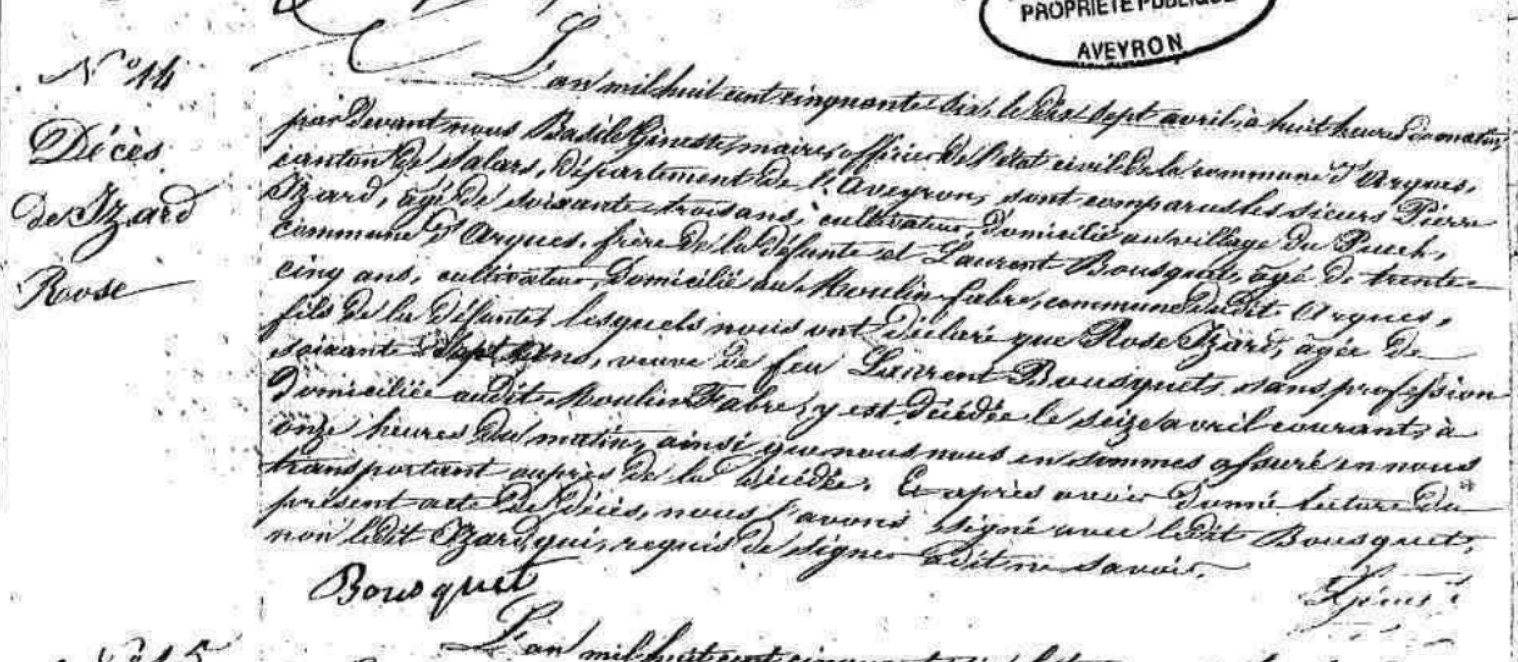 PROPRIETE PUBLIQUE
AVEYRON
N° 14
Décès
de Izard
Rose
L'an mil huit cent cinquante six, le dix sept avril, à huit heures du matin,
par devant nous Basile Gineste, maire, officier de l'état civil de la commune d'Arques,
canton de Salars, département de l'Aveyron, sont comparus les sieurs Pierre
Izard, âgé de soixante trois ans, cultivateur, domicilié au village du Puech,
commune d'Arques, frère de la défunte et Laurent Bousquet, âgé de trente
cinq ans, cultivateur, domicilié au Moulin fabre, commune dudit Arques,
fils de la défunte, lesquels nous ont déclaré que Rose Izard, agée de
soixante sept ans, veuve de feu Laurent Bousquet, sans profession
domiciliée audit Moulin Fabre, y est décédée le seize avril courant, à
onze heures du matin, ainsi que nous nous en sommes assuré en nous
transportant auprès de la décédée. Et après avoir donné lecture du
présent acte de décès, nous l'avons signé avec ledit Bousquet,
non ledit Izard, qui, requis de signer a dit ne savoir.
Bousquet
L'an mil huit cent cinquante six